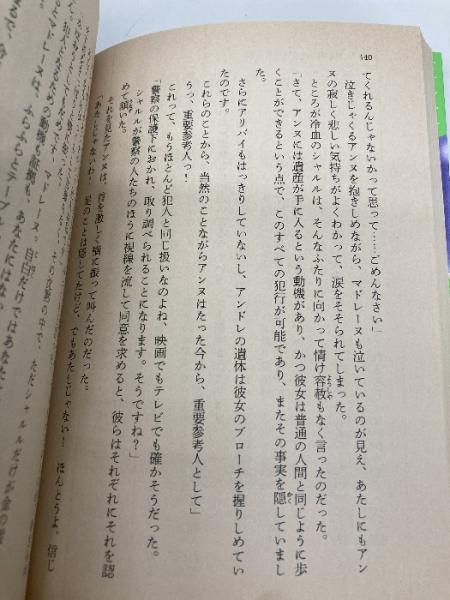 140
てくれるんじゃないかって思って……ごめんなさい」
泣きじゃくるアンヌを抱きしめながら、マドレーヌも泣いているのが見え、あたしにもアン
ヌの寂しく悲しい気持ちがよくわかって、涙をそそられてしまった。
ところが冷血のシャルルは、そんなふたりに向かって情け容赦もなく言ったのだった。
「さて、アンヌには遺産が手に入るという動機があり、かつ彼女は普通の人間と同じように歩
くことができるという点で、このすべての犯行が可能であり、またその事実を隠していまし
た。
さらにアリバイもはっきりしていないし、アンドレの遺体は彼女のブローチを握りしめてい
たのです。
これらのことから、当然のことながらアンヌは、たった今から、重要参考人として」
うっ、重要参考人っ!
これって、もうほとんど犯人と同じ扱いなのよね、映画でもテレビでも確かそうだった。
「警察の保護下におかれ、取り調べられることになります。そうですね?」
シャルルが警察の人たちのほうに視線を流して同意を求めると、彼らはそれぞれにそれを認
めて頷いた。
それを見たアンヌは、首を激しく横に振って叫んだのだった。
「あたしじゃないわ!　足のことは隠してたけど、でもあたしじゃない!　ほんとうよ、信じ